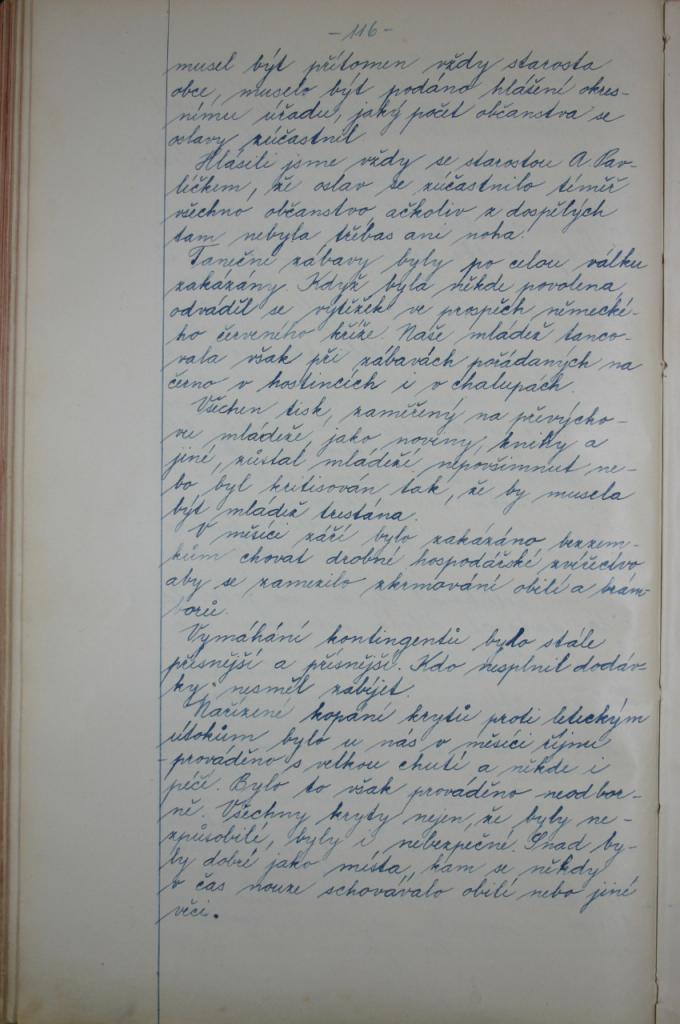 - 116 -
musel být přítomen vždy starosta
obce, muselo být podáno hlášení okres-
nímu úřadu, jaký počet občanstva se
oslavy zúčastnil
Hlásili jsme vždy se starostou A. Pav-
líčkem, že oslav se zúčastnilo téměř
všechno občanstvo, ačkoliv z dospělých
tam nebyla třebas ani noha.
Taneční zábavy byly po celou válku
zakázány. Když byla někde povolena,
odváděl se výtěžek ve prospěch německé-
ho červeného kříže. Naše mládež tanco-
vala však při zábavách pořádaných na
černo v hostincích i v chalupách.
Všechen tisk, zaměřený na převýcho-
vu mládeže, jako noviny, knihy a
jiné, zůstal mládeží nepovšimnut ne-
bo byl kritisován tak, že by musela
být mládež trestána.
V měsíci září bylo zakázáno bezzem-
kům chovat drobné hospodářské zvířectvo
aby se zamezilo zkrmování obilí a bram-
borů.
Vymáhání kontingentů bylo stále
přísnější a přísnější. Kdo nesplnil dodáv-
ky, nesměl zabíjet.
Nařízené kopání krytů proti leteckým
útokům bylo u nás v měsíci říjnu
prováděno s velkou chutí a někde i
péčí. Bylo to však prováděno neodbor-
ně. Všechny kryty nejen, že byly ne-
způsobilé, byly i nebezpečné. Snad by-
ly dobré jako místa, kam se někdy
v čas nouze schovávalo obilí nebo jiné
věci.